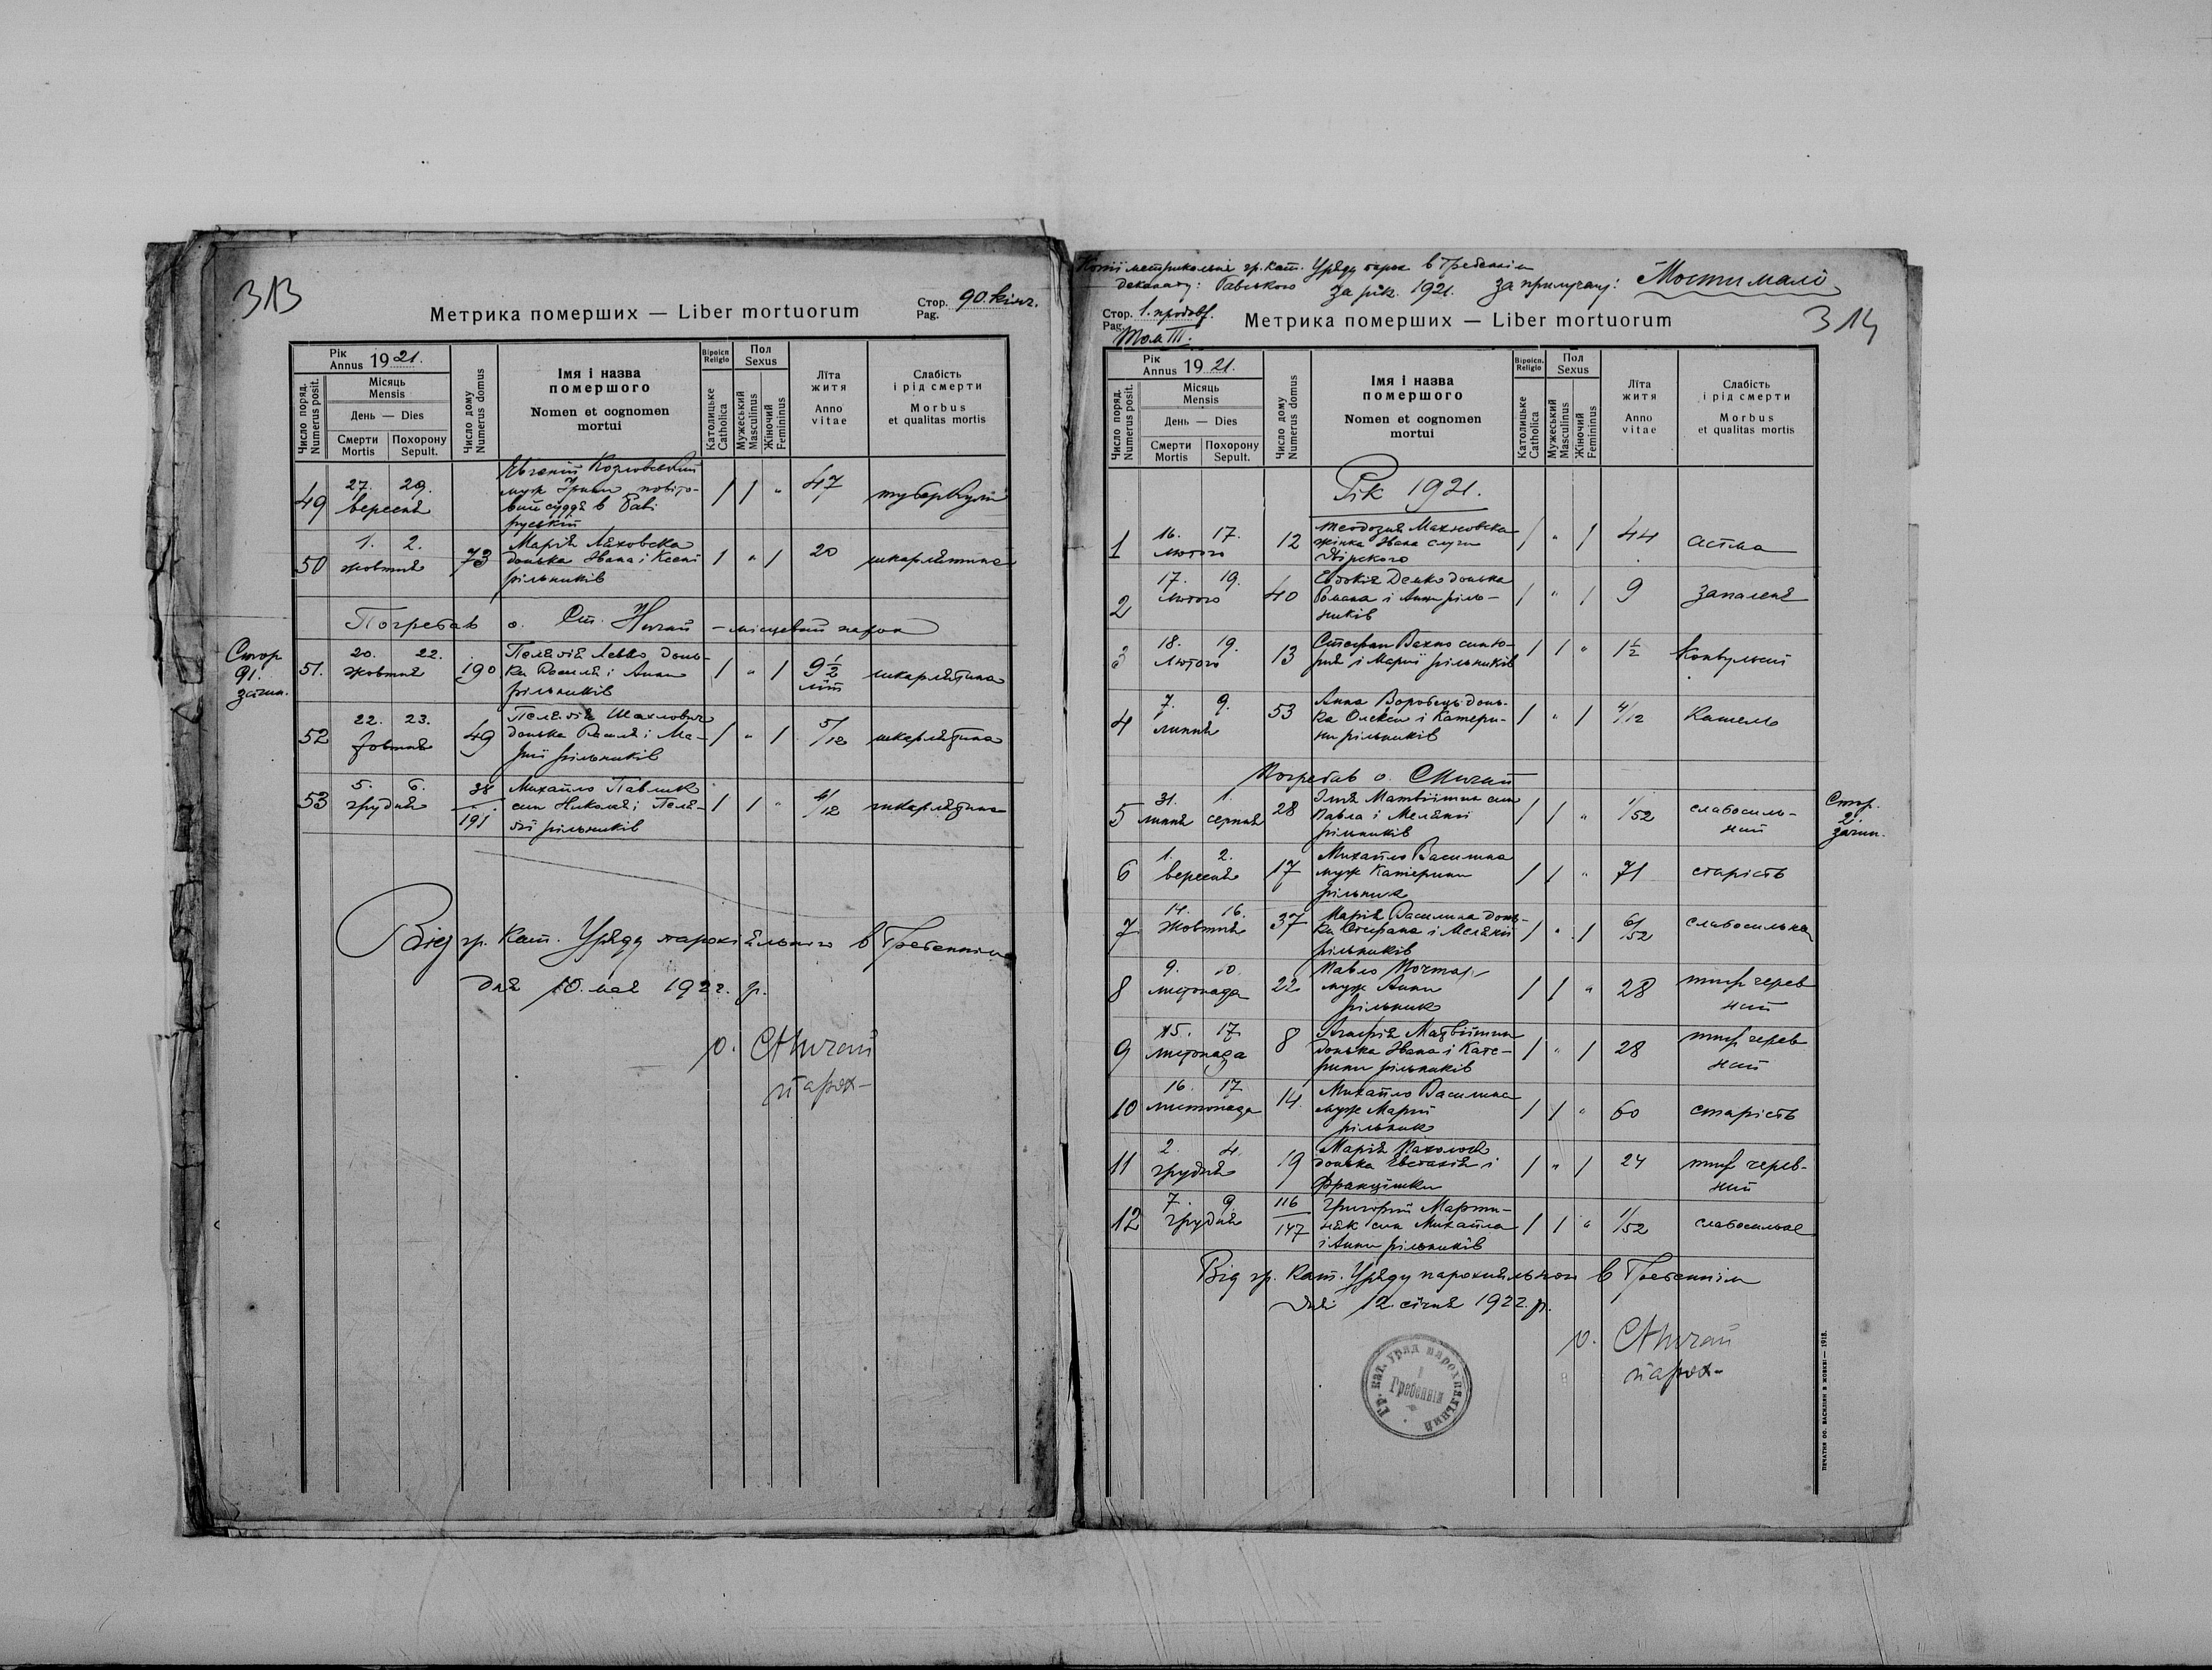 313
Метрика померших — Liber mortuorum
Стор. 90. кінч.
Pag.
Рік
Annus 1921.
Число поряд.
Numerus posit.
Місяць
Mensis
День — Dies
Смерти
Mortis
Похорону
Sepult.
Число дому
Numerus domus
Імя і назва
помершого
Nomen et cognomen
mortui
Віроісп.
Religio
Католицьке
Catholica
Пол
Sexus
Мужеський
Masculinus
Жіночий
Femininus
Лїта
житя
Anno
vitae
Слабість
і рід смерти
Morbus
et qualitas mortis
49 27. 29. вересня
Евгеній Козловський
муж Ірини повіто-
вий суддя в Раві
руській
/ / „ 47
50 1. 2. жовтня 73
Марія Ляховска
донька Івана і Ксені
рільників
/ „ / 20 шкарлятина
Погребав о. Ст. Нычай – місцевий парох
Стор
91.
зачин.
51. 20. 22. жовтня 190
Пелягія Левко донь-
ка Василя і Анни
рільників
/ „ / 9 1/2 літ шкарлятина
52 22. 23. жовтня 49
Пелягія
донька Василя і Ма-
рії рільників
/ „ / 5/12 шкарлятина
53 5. 6. грудня 38/191
Михайло Павлик
син Николая і Пеля-
гії рільників
/ / „ 4/12 шкарлятина
Від гр. кат. Уряду парохіяльного в Гребеннім
дня 10. мая 1922. р.
о.
парох
Копії метрикальні гр. кат. Уряду парох. в Гребеннім
деканату: Равського за рік. 1921. за прилучену: Мости малі
314
Стор. 1. продовж.
Pag.
Том III:
Метрика померших — Liber mortuorum
Рік
Annus 1921.
Число поряд.
Numerus posit.
Місяць
Mensis
День — Dies
Смерти
Mortis
Похорону
Sepult.
Число дому
Numerus domus
Імя і назва
помершого
Nomen et cognomen
mortui
Віроісп.
Religio
Католицьке
Catholica
Пол
Sexus
Мужеський
Masculinus
Жіночий
Femininus
Лїта
житя
Anno
vitae
Слабість
і рід смерти
Morbus
et qualitas mortis
Рік 1921.
1 16. 17. лютого 12
Теодозия Махновска
жінка Івана слуги
двірского
/ „ / 44 астма
2 17. 19. лютого 40
Евдокія Демко донька
Романа і Анни ріль-
ників
/ „ / 9 запаленя
3 18. 19. лютого 13
Стефан Вахно син Ю-
рия і Марії рільників
/ / „ 1 1/2 конвульсії
4 7. 9. липня 53
Анна Воробець донь-
ка Олекси і Катери-
ни рільників
/ „ / 4/12 кашель
Погребав о.
Стор.
2.
зачин.
5 31. 1. липня серпня 28
Ілия Матвіишин син
Павла і Меланії
рільників
/ / „ 1/52 слабосиль-
ний
6 1. 2. вересня 17
Михайло Василина
муж Катерини
рільник
/ / „ 71 старість
7 14. 16. жовтня 37
Марія Василина донь-
ка Стефана і Меланії
рільників
/ „ / 6/52 слабосильна
8 9. 10. листопада 22
Павло Почтар
муж Анни
рільник
/ / „ 28 тиф черев-
ний
9 15. 17. листопада 8
Агафія Матвіишин
донька Івана і Кате-
рини рільників
/ „ / 28 тиф черев-
ний
10 16. 17. листопада 14.
Михайло Василина
муж Марії
рільник
/ / „ 60 старість
11 2. 4. грудня 19
Марія Пахолок
донька Евстахія і
Францішки
/ „ / 24 тиф черев-
ний
12 7. 9. грудня 116/147
Григорий Марти-
няк син Михайла
і Анни рільників
/ / „ 1/52 слабосильне
Від гр. кат. Уряду парохияльного в Гребеннім
дня 12. січня 1922. р.
о.
парох
Гр. кат. уряд парохіяльний
Гребеннім
ПЕЧАТНЯ ОО. ВАСИЛІЯН В ЖОВКВІ — 1918.